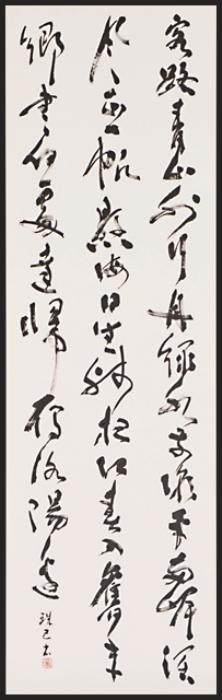 客路青山外行舟綠水前潮平兩岸濶
風正一帆懸海日生殘夜江春入舊年
鄉書何處達歸雁洛陽邊